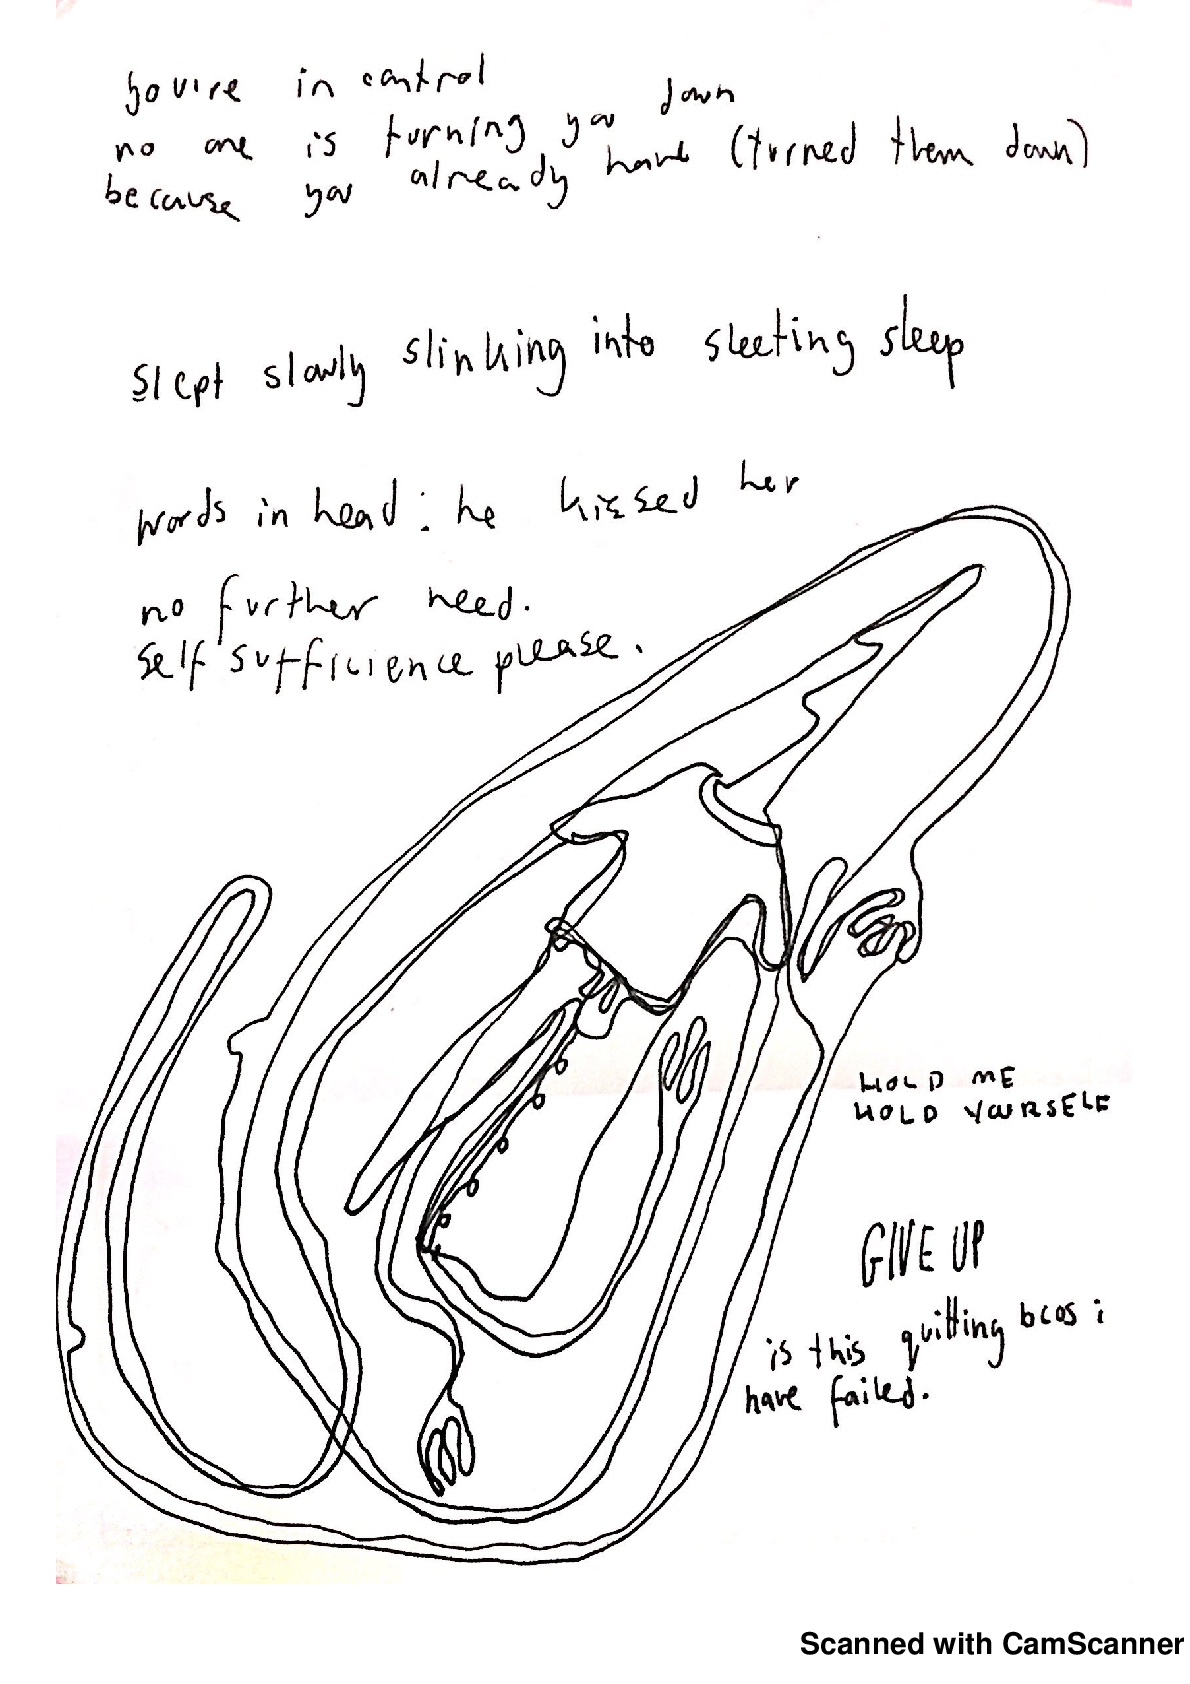 youre in control
no one is turning you down
because you already have (turned them down)
slept slowly slinking into sleeting sleep
words in head: he kissed her
no further need.
self sufficience please.
HOLD ME
HOLD YOURSELF
GIVE UP
is this quitting bcos i
have failed.
Scanned with CamScanner